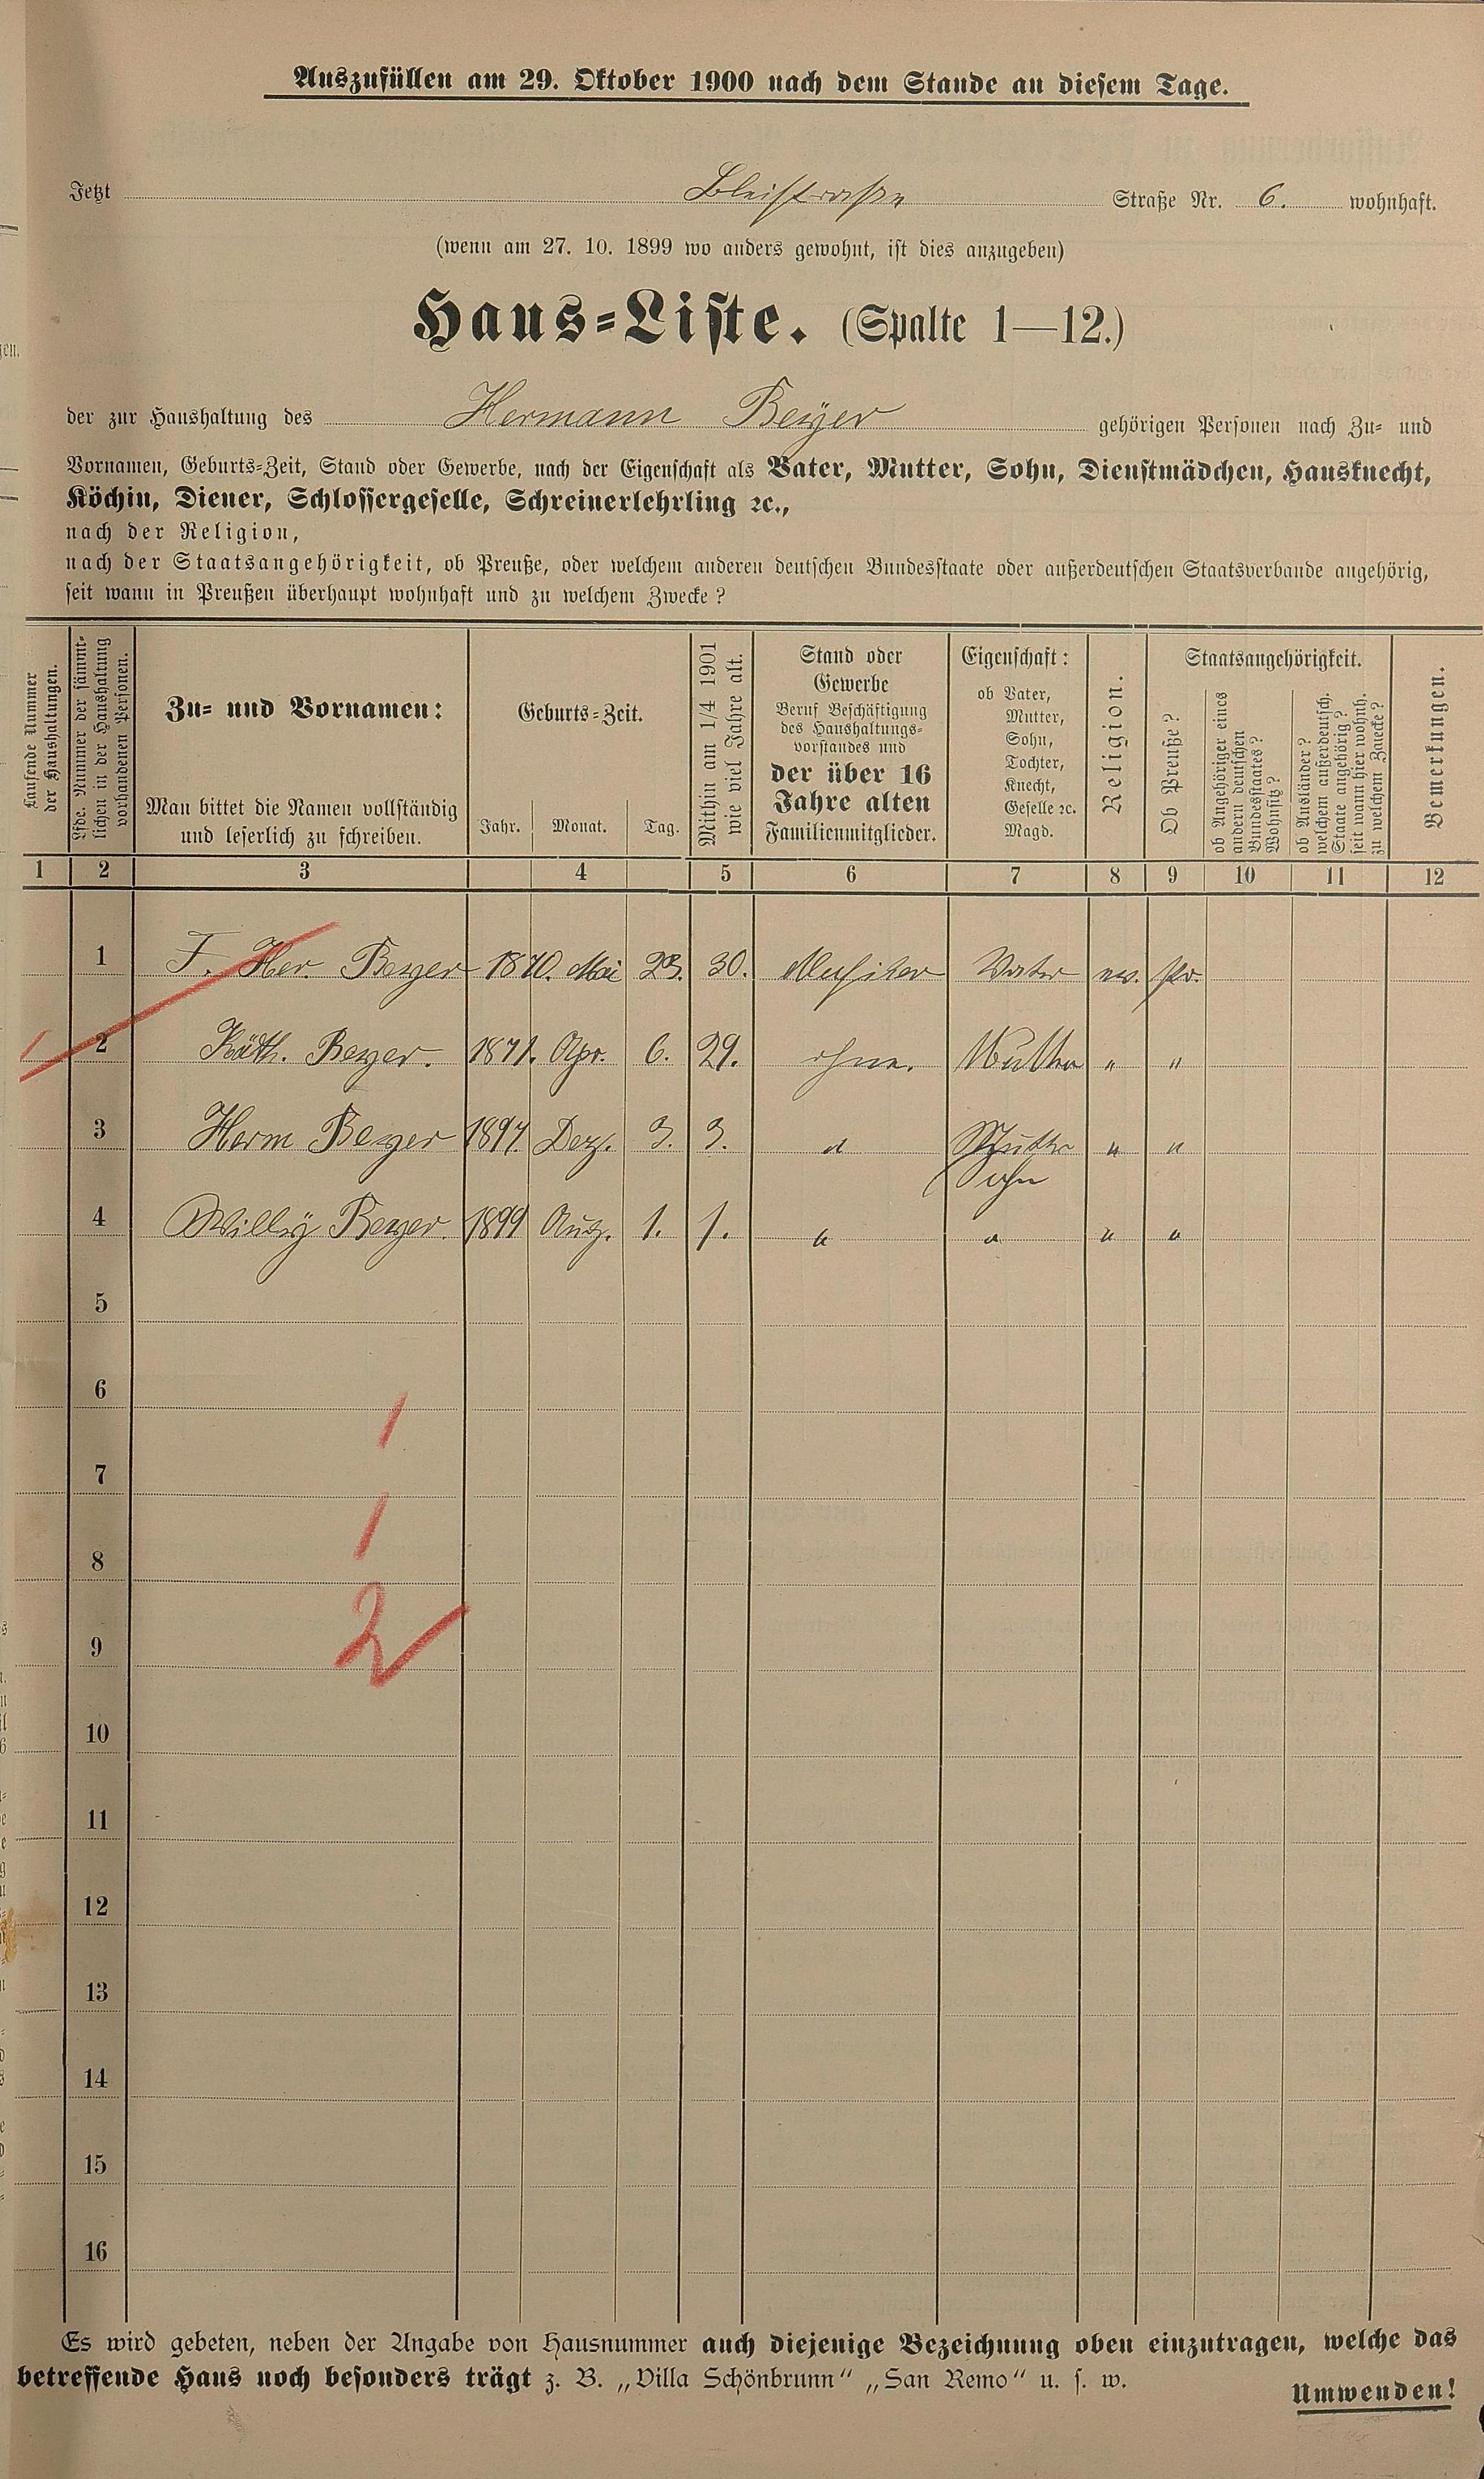 Auszufüllen am 29. Oktober 1900 nach dem Stande an diesem Tage.
Jetzt Bleistraße Straße Nr. 6. wohnhaft.
(wenn am 27. 10. 1899 wo anders gewohnt, ist dies anzugeben)
Haus=Liste. (Spalte 1—12.)
der zur Haushaltung des Hermann Beyer gehörigen Personen nach Zu= und
Vornamen, Geburts=Zeit, Stand oder Gewerbe, nach der Eigenschaft als Vater, Mutter, Sohn, Dienstmädchen, Hausknecht,
Köchin, Diener, Schlossergeselle, Schreinerlehrling ꝛc.,
nach der Religion,
nach der Staatsangehörigkeit, ob Preuße, oder welchem anderen deutschen Bundesstaate oder außerdeutschen Staatsverbande angehörig,
seit wann in Preußen überhaupt wohnhaft und zu welchem Zwecke?
Laufende Nummer
der Haushaltungen.
Lfde. Nummer der sämmt=
lichen in der Haushaltung
vorhandenen Personen.
Zu= und Vornamen:
Man bittet die Namen vollständig
und leserlich zu schreiben.
Geburts=Zeit.
Jahr. Monat. Tag.
Mithin am 1/4 1901
wie viel Jahre alt.
Stand oder
Gewerbe
Beruf Beschäftigung
des Haushaltungs=
vorstandes und
der über 16
Jahre alten
Familienmitglieder.
Eigenschaft:
ob Vater,
Mutter,
Sohn,
Tochter,
Knecht,
Geselle ꝛc.
Magd.
Religion.
Staatsangehörigkeit.
Ob Preuße?
ob Angehöriger eines
andern deutschen
Bundesstaates?
Wohnsitz?
ob Ausländer?
welchem außerdeutsch.
Staate angehörig?
seit wann hier wohnh.
zu welchem Zwecke?
Bemerkungen.
1 2 3 4 5 6 7 8 9 10 11 12
1 F. Her Beyer 1870. Mai 23. 30. Musiker Vater ev. Pr.
2 Käth. Beyer. 1871. Apr. 6. 29. ohne. Mutter " "
3 Herm Beyer 1897. Dez. 3. 3. " Mutter " "
Sohn
4 Willy Beyer. 1899 Aug. 1. 1. " " " "
5
6
1
7
1
8
2
9
10
11
12
13
14
15
16
Es wird gebeten, neben der Angabe von Hausnummer auch diejenige Bezeichnung oben einzutragen, welche das
betreffende Haus noch besonders trägt z. B. „Villa Schönbrunn“ „San Remo“ u. s. w.
Umwenden!